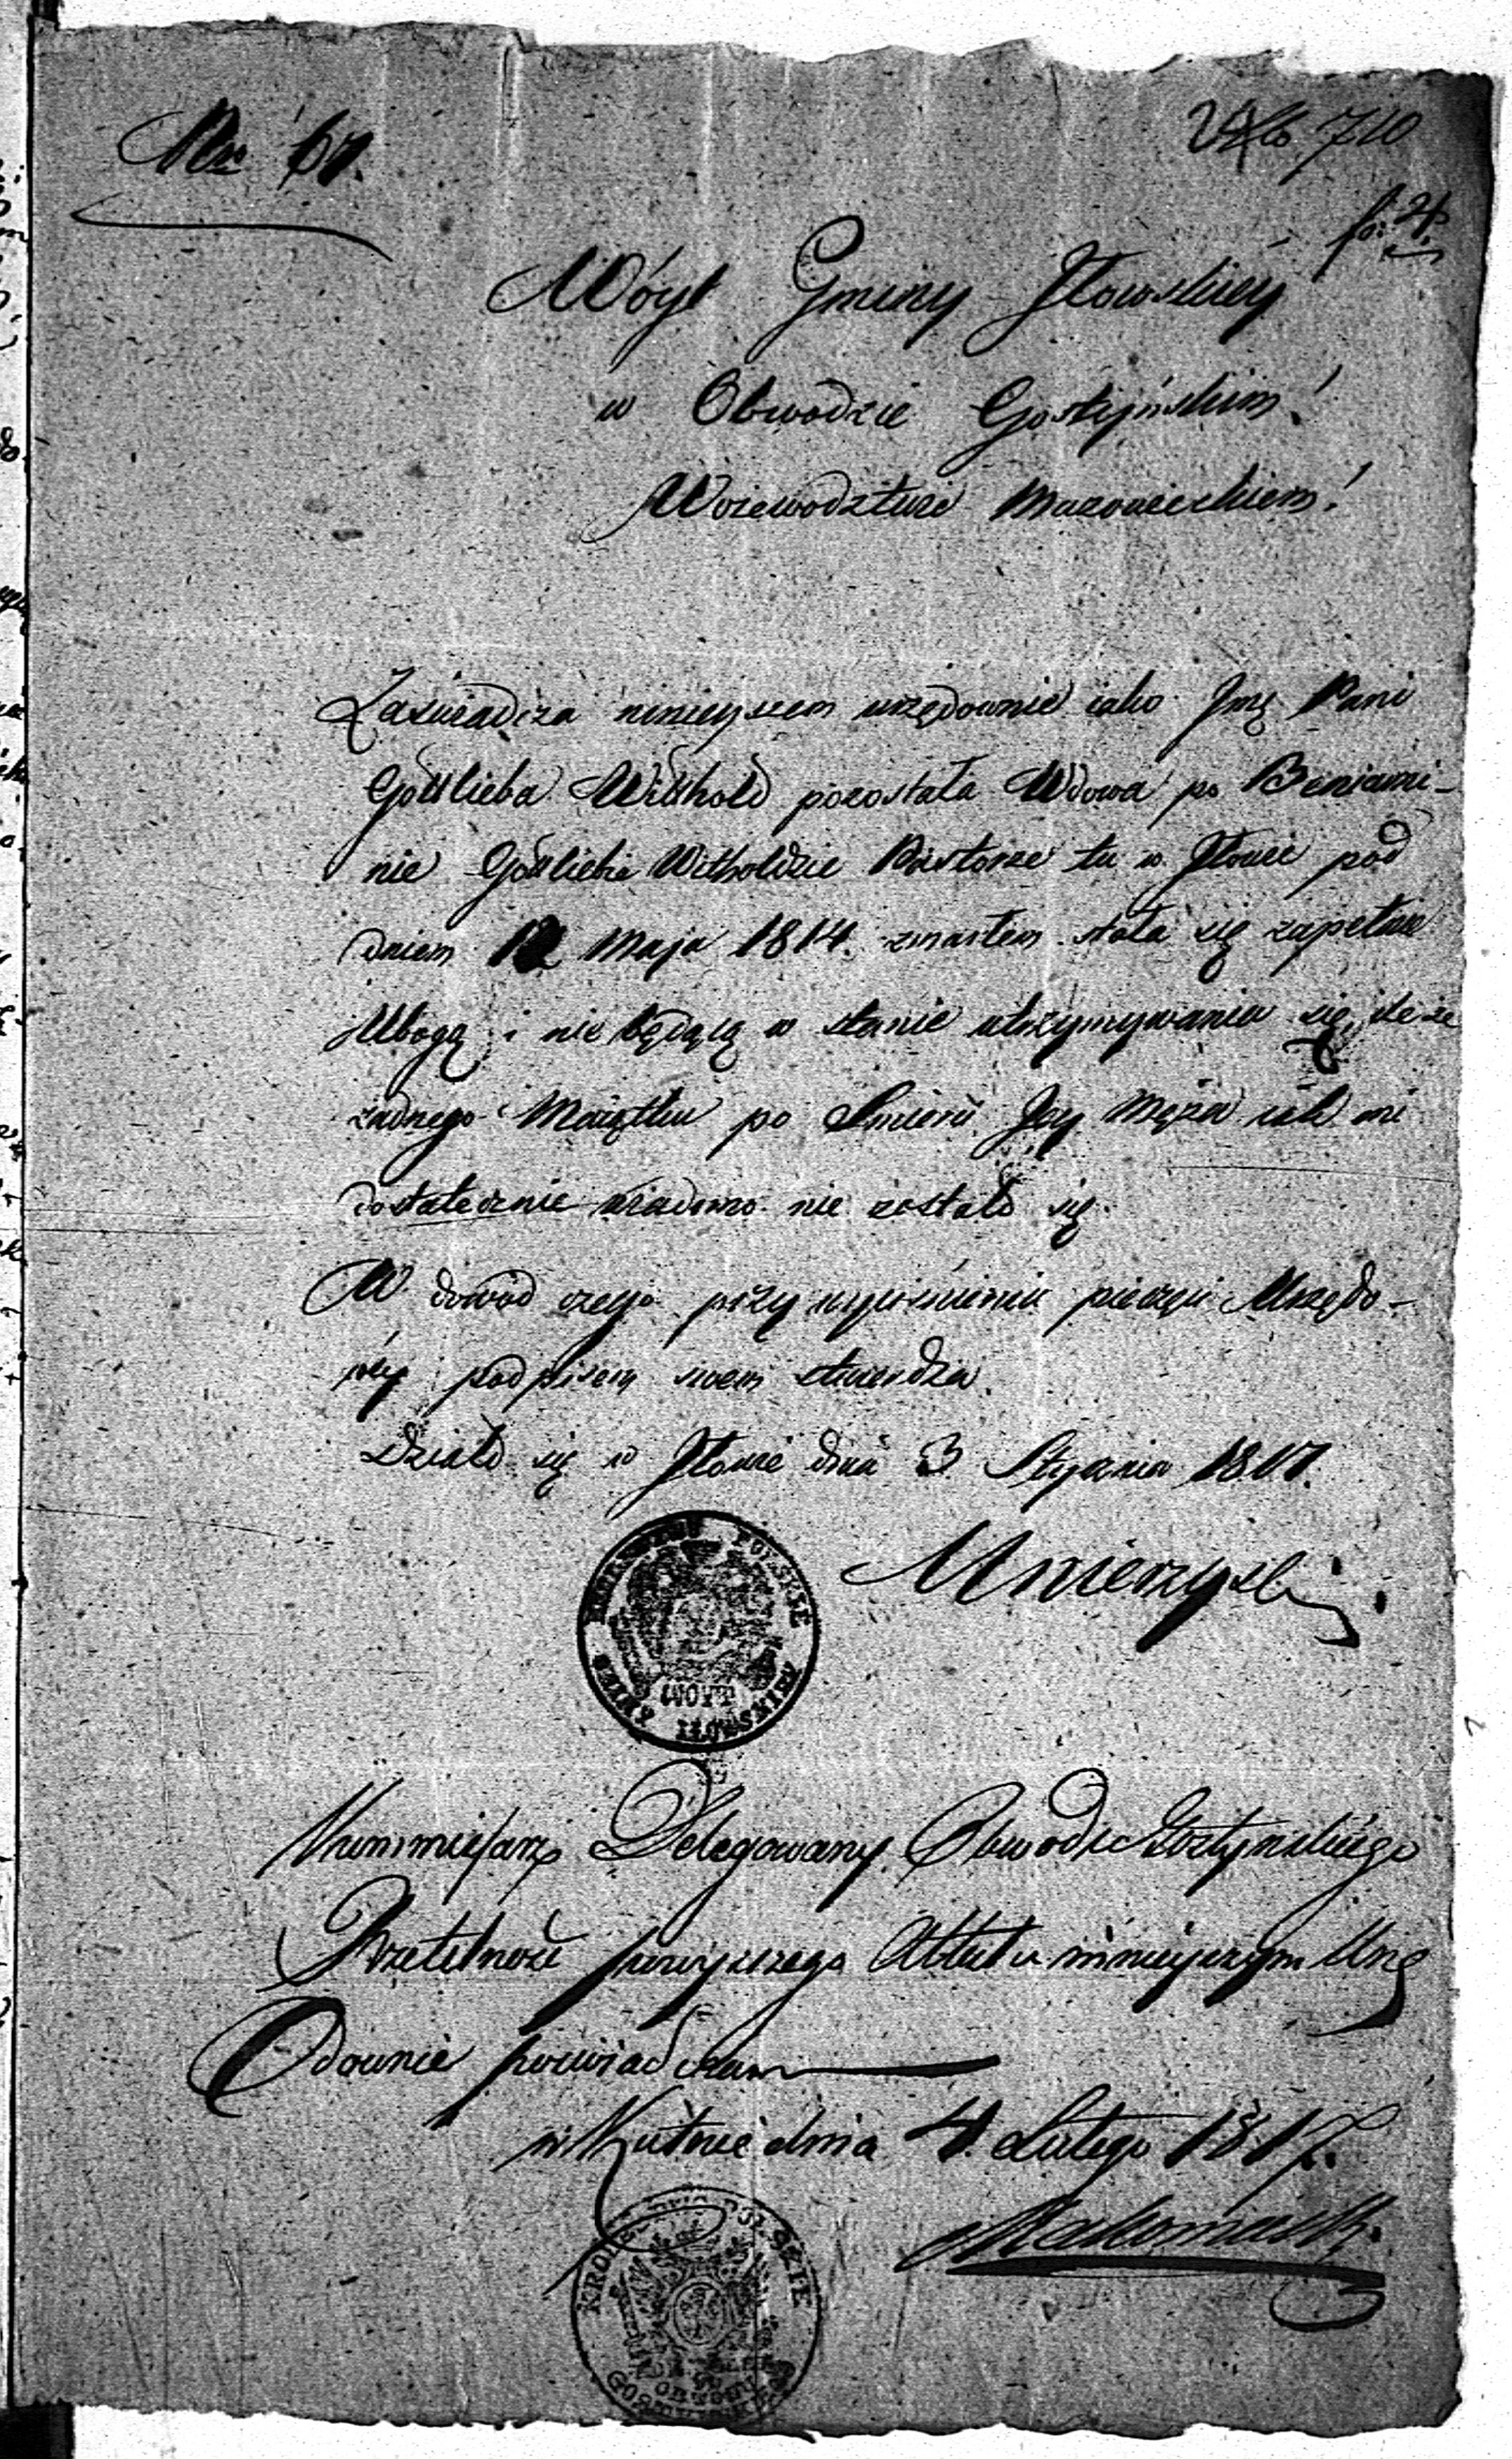 Nro 67.
710
fo: 4
Wóyt Gminy Iłowskiey
w Obwodzie Gostyńskim
Woiewodztwie Mazowieckiem
Zaświadcza ninieyszem urzędownie iako Jmę Pani
Gottlieba Witthold pozostała Wdowa po Beniami-
nie Gottliebie Wittholdzie Pastorze tu w Iłowie pod
dniem 12 Maja 1814. zmarłem stała się zupełnie
Ubogą i nie będącą w stanie utrzymywania się, ile że
żadnego Maiątku po Śmierci Jey Męża iak mi
dostatecznie wiadomo nie zostało się.
W dowód czego przy wyciśnieniu pieczęci Urzędo-
wey podpisem swem stwierdza.
Działo się w Iłowie dnia 3 Stycznia 1817.
KROLESTWO POLSKIE
WOYT
GMINY IŁOWSKIEY
Kommissarz Delegowany Obwodu Gostynskiego
Rzetelność powyższego Attestu ninieyszym Urzę
Odownie poświadczam
w Kutnie dnia 4. Lutego 1817.
KROLESTWO POLSKIE